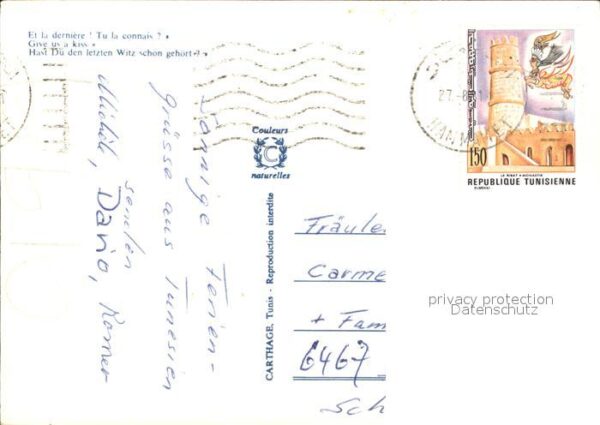 Et la dernière ! Tu la connais ? «
Give us a kiss »
Hast Du den letzten Witz schon gehört ?»
Sonnige Ferien-
grüsse aus Tunesien
senden
Michèle, Dario,
Couleurs
C
naturelles
CARTHAGE, Tunis - Reproduction interdite
150
LE RIBAT - MONASTIR
REPUBLIQUE TUNISIENNE
Fräule
Carme
+ Fam
6467
Sch
privacy protection
Datenschutz